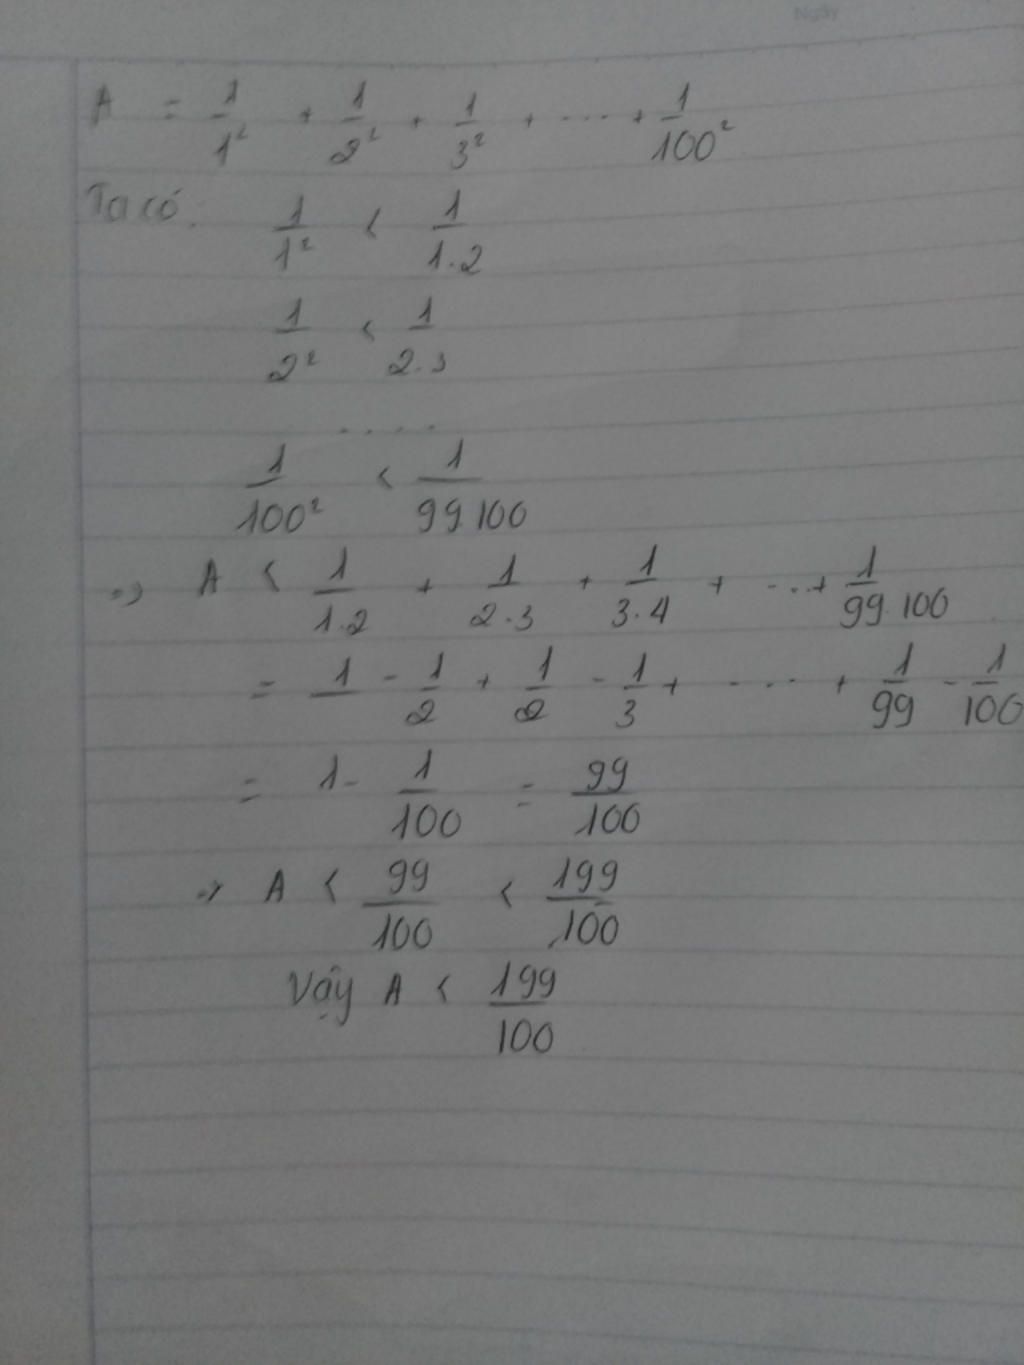 Ngày
A = 1/1² + 1/2² + 1/3² + .... + 1/100²
Ta có: 1/1² < 1/1.2
1/2² < 1/2.3
.....
1/100² < 1/99.100
=> A < 1/1.2 + 1/2.3 + 1/3.4 + ...+ 1/99.100
= 1 - 1/2 + 1/2 - 1/3 + .... + 1/99 - 1/100
= 1 - 1/100 = 99/100
=> A < 99/100 < 199/100
Vậy A < 199/100